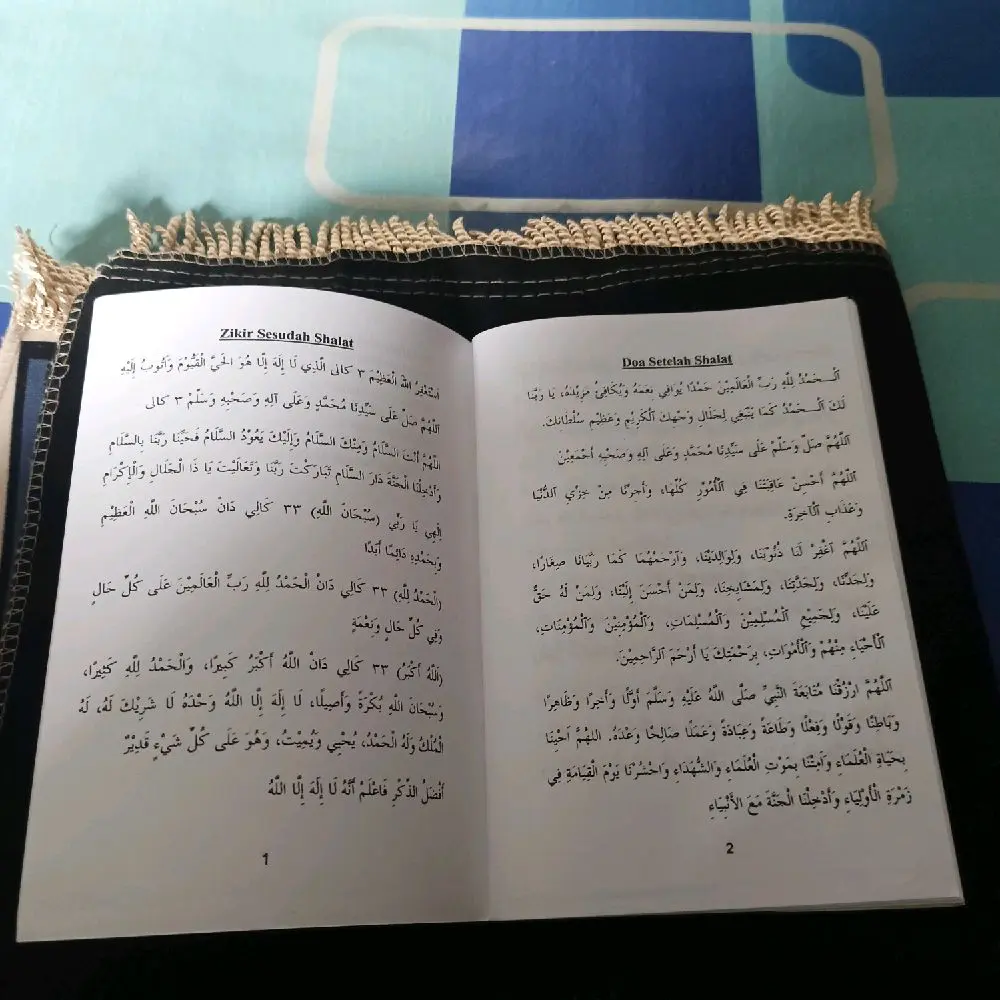 Zikir Sesudah Shalat
أَسْتَغْفِرُ اللهَ الْعَظِيْمَ ٣ كالى الَّذِي لَا إِلَهَ إِلَّا هُوَ الْحَيَّ الْقَيُّوْمَ وَأَتُوبُ إِلَيْهِ
اَللَّهُمَّ صَلِّ عَلَى سَيِّدِنَا مُحَمَّدٍ وَعَلَى آلِهِ وَصَحْبِهِ وَسَلِّمْ ٣ كالى
اَللَّهُمَّ أَنْتَ السَّلَامُ وَمِنْكَ السَّلَامُ وَإِلَيْكَ يَعُوْدُ السَّلَامُ فَحَيِّنَا رَبَّنَا بِالسَّلَامِ
وَأَدْخِلْنَا الْجَنَّةَ دَارَ السَّلَامِ تَبَارَكْتَ رَبَّنَا وَتَعَالَيْتَ يَا ذَا الْجَلَالِ وَالْإِكْرَامِ
إِلَهِي يَا رَبِّي (سُبْحَانَ اللَّهِ) ٣٣ كَالِي دَانْ سُبْحَانَ اللَّهِ الْعَظِيْمِ
وَبِحَمْدِهِ دَائِمًا أَبَدًا
(الْحَمْدُ لِلَّهِ) ٣٣ كَالِي دَانْ الْحَمْدُ لِلَّهِ رَبِّ الْعَالَمِيْنَ عَلَى كُلِّ حَالٍ
وَفِي كُلِّ حَالٍ وَنِعْمَةٍ
(اَللَّهُ أَكْبَرُ) ٣٣ كَالِي دَانْ اللَّهُ أَكْبَرُ كَبِيرًا، وَالْحَمْدُ لِلَّهِ كَثِيرًا،
وَسُبْحَانَ اللَّهِ بُكْرَةً وَأَصِيلًا، لَا إِلَهَ إِلَّا اللَّهُ وَحْدَهُ لَا شَرِيْكَ لَهُ، لَهُ
الْمُلْكُ وَلَهُ الْحَمْدُ، يُحْيِي وَيُمِيْتُ، وَهُوَ عَلَى كُلِّ شَيْءٍ قَدِيْرٌ
أَفْضَلُ الذِّكْرِ فَاعْلَمْ أَنَّهُ لَا إِلَهَ إِلَّا اللَّهُ
1
Doa Setelah Shalat
اَلْـحَمْدُ لِلَّهِ رَبِّ الْعَالَمِيْنَ حَمْدًا يُوَافِي نِعَمَهُ وَيُكَافِئُ مَزِيْدَهُ، يَا رَبَّنَا
لَكَ الْـحَمْدُ كَمَا يَنْبَغِي لِجَلَالِ وَجْهِكَ الْكَرِيْمِ وَعَظِيْمِ سُلْطَانِكَ.
اَللَّهُمَّ صَلِّ وَسَلِّمْ عَلَى سَيِّدِنَا مُحَمَّدٍ وَعَلَى آلِهِ وَصَحْبِهِ أَجْمَعِيْنَ
اَللَّهُمَّ أَحْسِنْ عَاقِبَتَنَا فِي الْأُمُوْرِ كُلِّهَا، وَأَجِرْنَا مِنْ خِزْيِ الدُّنْيَا
وَعَذَابِ الْآخِرَةِ.
اَللَّهُمَّ اغْفِرْ لَنَا ذُنُوْبَنَا، وَلِوَالِدَيْنَا، وَارْحَمْهُمَا كَمَا رَبَّيَانَا صِغَارًا،
وَلِجَدِّنَا، وَلِجَدَّتِنَا، وَلِمَشَايِخِنَا، وَلِمَنْ أَحْسَنَ إِلَيْنَا، وَلِمَنْ لَهُ حَقٌّ
عَلَيْنَا، وَلِجَمِيْعِ الْمُسْلِمِيْنَ وَالْمُسْلِمَاتِ، وَالْمُؤْمِنِيْنَ وَالْمُؤْمِنَاتِ،
الْأَحْيَاءِ مِنْهُمْ وَالْأَمْوَاتِ، بِرَحْمَتِكَ يَا أَرْحَمَ الرَّاحِمِيْنَ.
اَللَّهُمَّ ارْزُقْنَا مُتَابَعَةَ النَّبِيِّ صَلَّى اللَّهُ عَلَيْهِ وَسَلَّمَ أَوَّلًا وَآخِرًا وَظَاهِرًا
وَبَاطِنًا وَقَوْلًا وَفِعْلًا وَطَاعَةً وَعِبَادَةً وَعَمَلًا صَالِحًا وَعَدَهُ. اللهُمَّ أَحْيِنَا
بِحَيَاةِ الْعُلَمَاءِ وَأَمِتْنَا بِمَوْتِ الْعُلَمَاءِ وَالشُّهَدَاءِ وَاحْشُرْنَا يَوْمَ الْقِيَامَةِ فِي
زُمْرَةِ الْأَوْلِيَاءِ وَأَدْخِلْنَا الْجَنَّةَ مَعَ الْأَنْبِيَاءِ
2